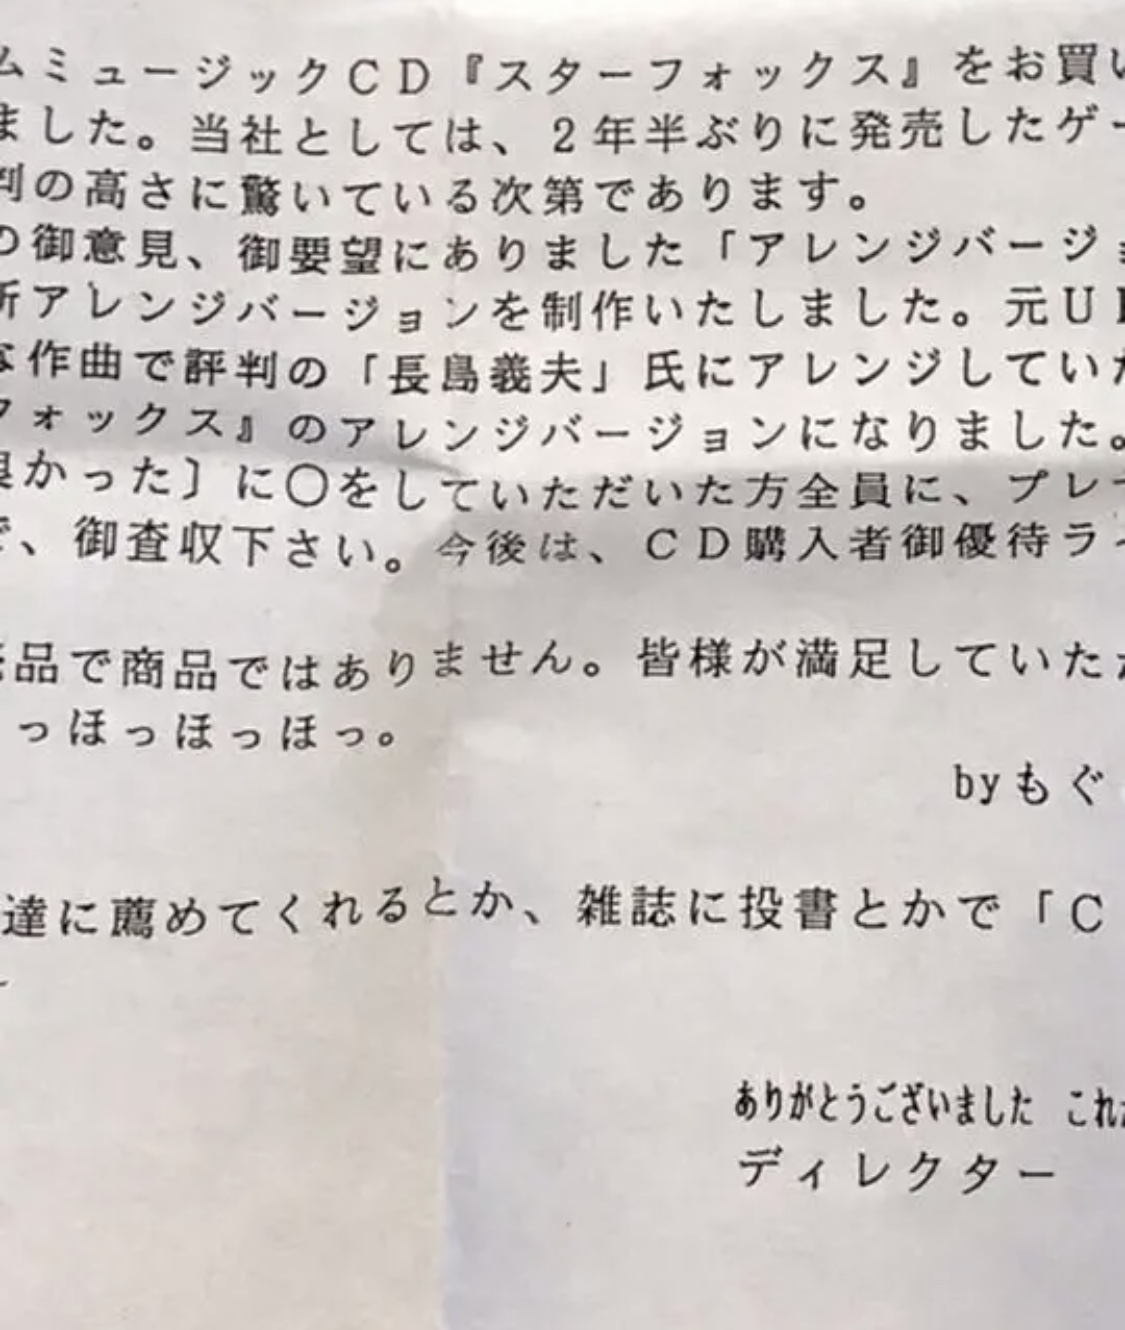 ムミュージックCD『スターフォックス』をお買い
ました。当社としては、2年半ぶりに発売したゲー
判の高さに驚いている次第であります。
の御意見、御要望にありました「アレンジバージョ
所アレンジバージョンを制作いたしました。元U
な作曲で評判の「長島義夫」氏にアレンジしていた
フォックス』のアレンジバージョンになりました。
良かった〕に〇をしていただいた方全員に、プレ
で、御査収下さい。今後は、CD購入者御優待ライ
品で商品ではありません。皆様が満足していた
っほっほっほっ。
byもぐ
達に薦めてくれるとか、雑誌に投書とかで「C
ありがとうございました これ
ディレクター